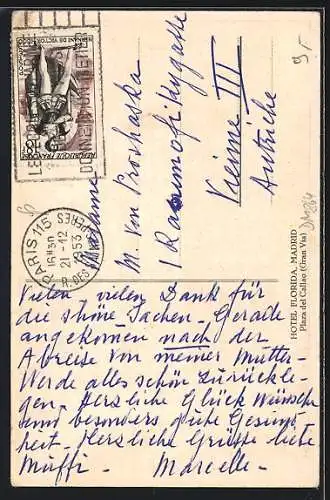 HERNANI DE VICTOR HUGO
REPUBLIQUE FRANÇAISE
PARIS 115
21-12
1953
R. DES
Madame
M. Von Prochaska
Vienne III
Autriche
HOTEL FLORIDA. MADRID
Plaza del Callao (Gran Via)
Vielen vielen Dank für
die schöne Sachen - Gerade
angekommen nach der
Abreise von meiner Mutter -
Werde alles schön zurückle-
gen. Herzliche Glück Wünsche
und besonders gute Gesund
heit. Herzliche Grüsse liebe
Muffi - Marcelle -